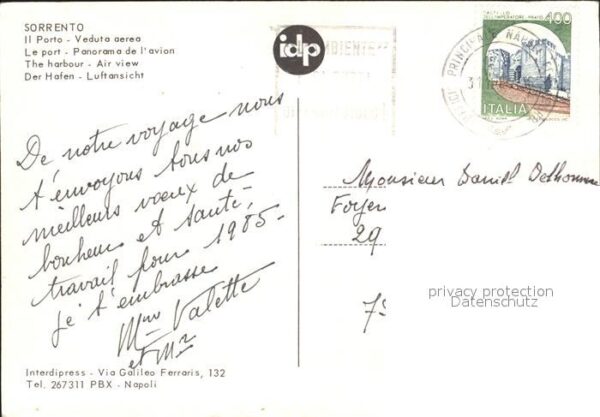 SORRENTO
Il Porto - Veduta aerea
Le port - Panorama de l'avion
The harbour - Air view
Der Hafen - Luftansicht
idp
AMBIENTE
CASTELLO
DELL'IMPERATORE - PRATO
400
ITALIA
De notre voyage nous
t'envoyons tous nos
meilleurs vœux de
bonheur et santé,
travail pour 1985.
Je t'embrasse
Mme Valette
et Mr
Monsieur Daniel Delhomme
Foyer
29
7
privacy protection
Datenschutz
Interdipress - Via Galileo Ferraris, 132
Tel. 267311 PBX - Napoli